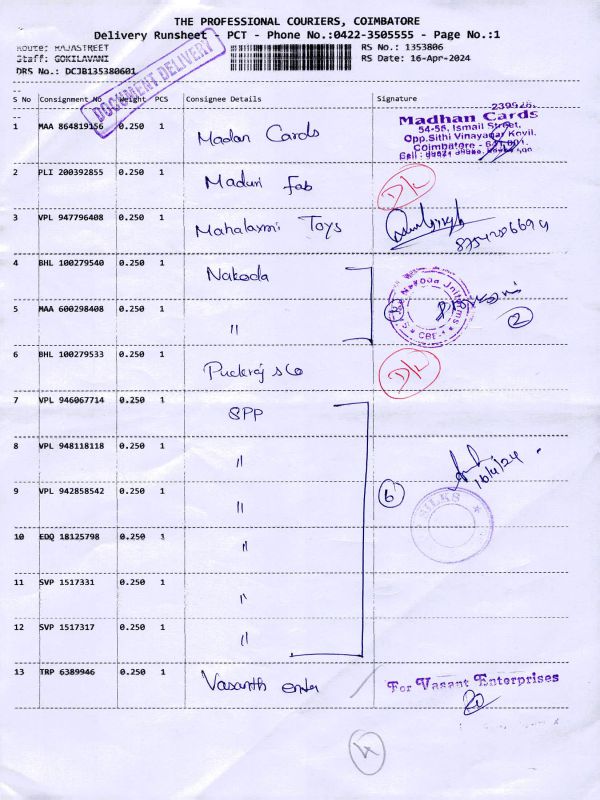 THE PROFESSIONAL COURIERS, COIMBATORE
Delivery Runsheet - PCT - Phone No.:0422-3505555 - Page No.:1
Route: RAJASTREET RS No.: 1353806
Staff: GOKILAVANI RS Date: 16-Apr-2024
DRS No.: DCJB135380601
DOCUMENT DELIVERY
S No Consignment No Weight PCS Consignee Details Signature
1 MAA 864819156 0.250 1 Madan Cards
Madhan Cards
54-56, Ismail Street,
Opp.Sithi Vinayagar Kovil.
Coimbatore - 641 001.
2 PLI 200392855 0.250 1 Maduri Fab D/L
3 VPL 947796408 0.250 1 Mahalaxmi Toys
4 BHL 100279540 0.250 1 Nakoda
5 MAA 600298408 0.250 1 "
Nakoda
CBE-1
2
6 BHL 100279533 0.250 1 D/L
7 VPL 946067714 0.250 1 SPP
8 VPL 948118118 0.250 1 "
16/4/24
9 VPL 942858542 0.250 1 " 6
SILKS
10 EDQ 18125798 0.250 1 "
11 SVP 1517331 0.250 1 "
12 SVP 1517317 0.250 1 "
13 TRP 6389946 0.250 1 Vasanth enter
For Vasant Enterprises
4